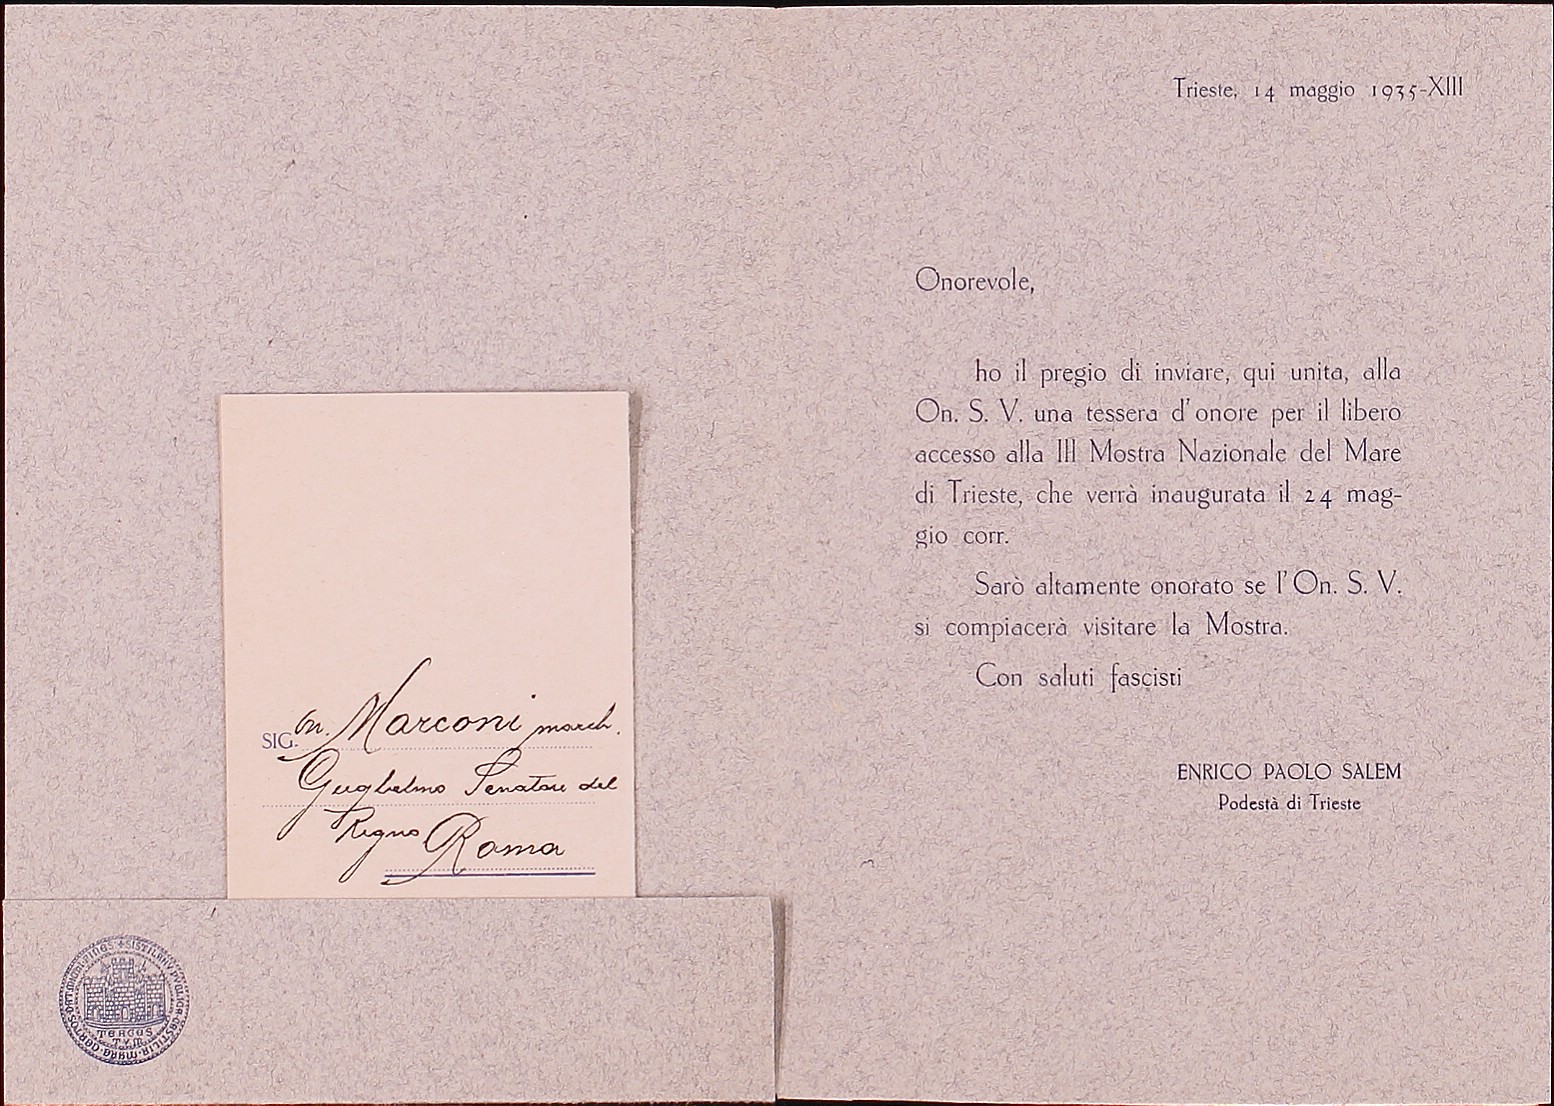 SIG. On. Marconi march.
Guglielmo Senatore del
Regno Roma
TERGES
TVM
Trieste, 14 maggio 1935-XIII
Onorevole,
ho il pregio di inviare, qui unita, alla
On. S. V. una tessera d'onore per il libero
accesso alla III Mostra Nazionale del Mare
di Trieste, che verrà inaugurata il 24 mag-
gio corr.
Sarò altamente onorato se l'On. S. V.
si compiacerà visitare la Mostra.
Con saluti fascisti
ENRICO PAOLO SALEM
Podestà di Trieste